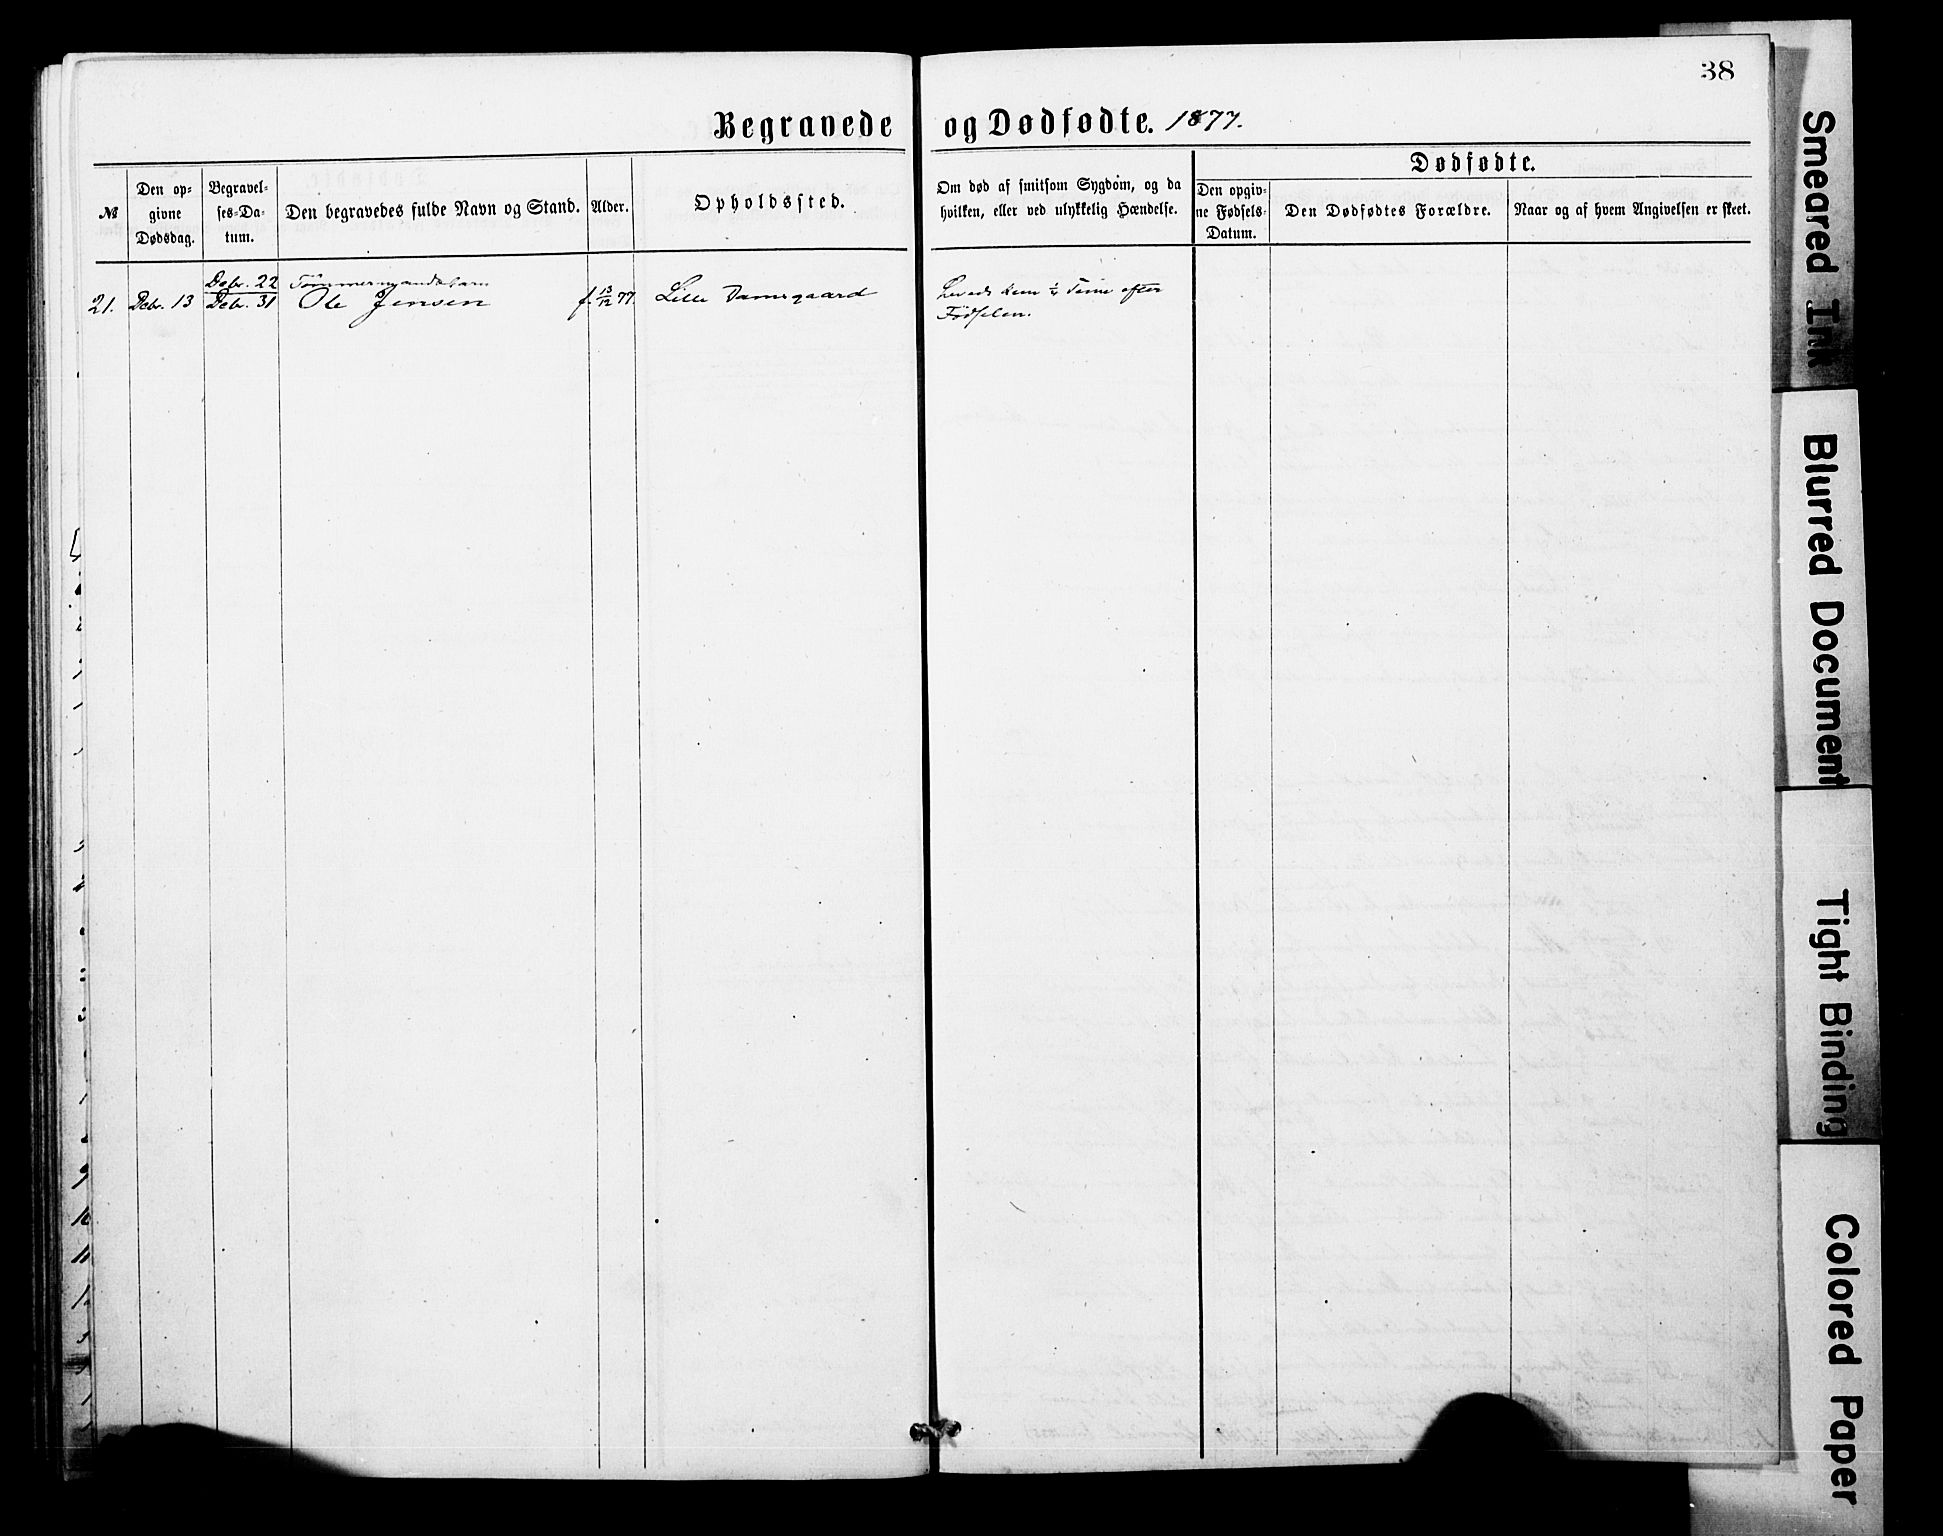 38
Begravede og Dødfødte. 1877.
Dødfødte.
№
Den op-
givne
Dødsdag.
Begravel-
ses-Da-
tum.
Den begravedes fulde Navn og Stand.
Alder.
Opholdssted.
Om død af smitsom Sygdom, og da
hvilken, eller ved ulykkelig Hændelse.
Den opgiv-
ne Fødsels-
Datum.
Den Dødfødtes Forældre.
Naar og af hvem Angivelsen er skeet.
Debr. 22
Tømmermandsbarn
21. Debr. 13 Debr. 31 Ole Jensen f. 13/12 77. Lille Damsgaard
Levede kun ½ Time efter
Fødselen.
Smeared Ink
Blurred Document
Tight Binding
Colored Paper